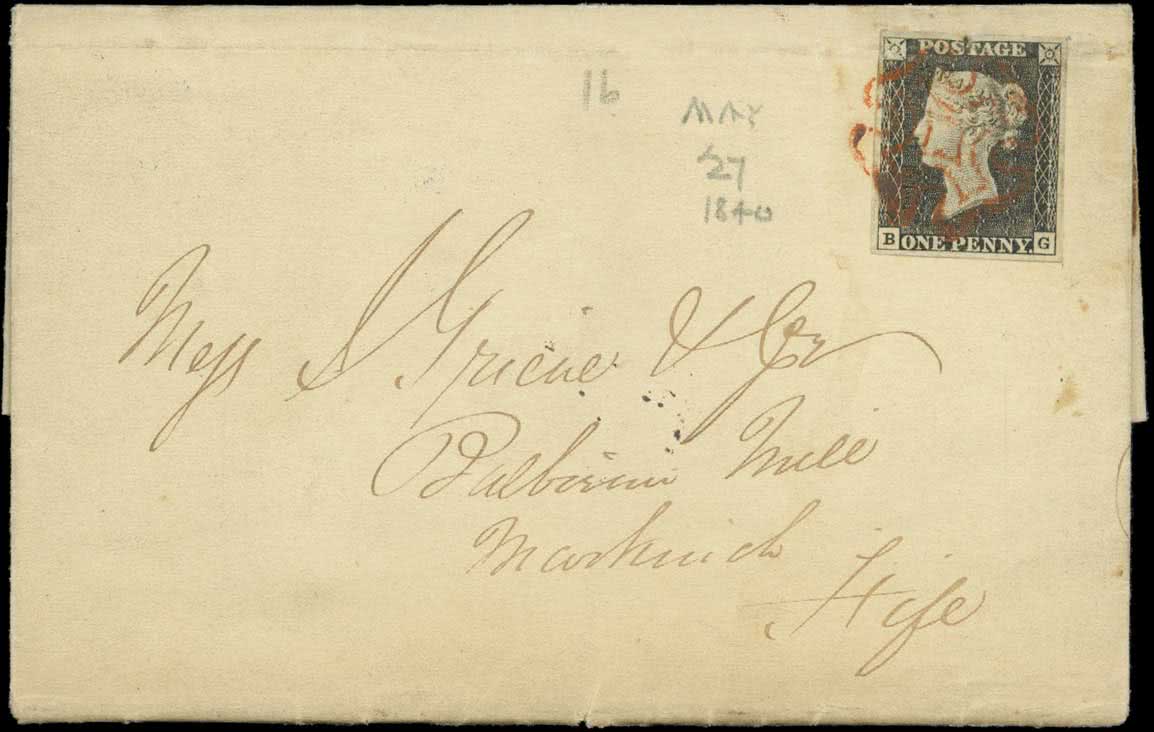 POSTAGE
1b
MAY
27
1840
B ONE PENNY. G
Mess J Grieve & Co
Balbirnie Mill
Markinch
Fife